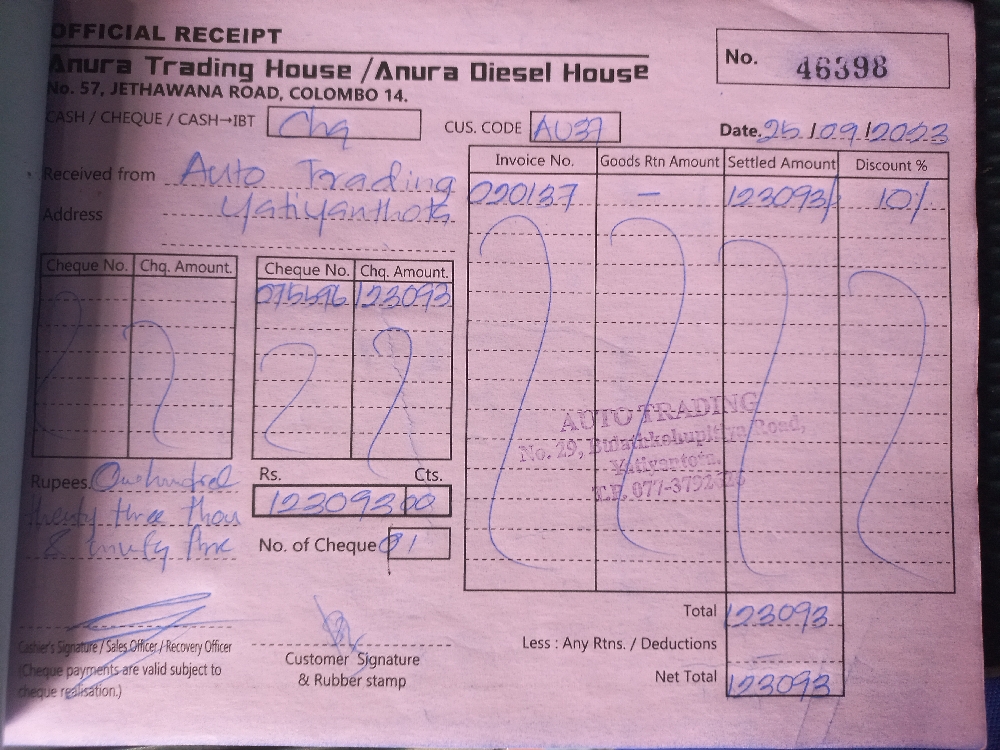 OFFICIAL RECEIPT
Anura Trading House / Anura Diesel House
No. 57, JETHAWANA ROAD, COLOMBO 14.
No. 46398
CASH / CHEQUE / CASH→IBT Chq
CUS. CODE AU37
Date. 25/09/2023
Received from Auto Trading
Address Yatiyanthota
Invoice No. Goods Rtn Amount Settled Amount Discount %
020137 — 123093/ 10%
Cheque No. Chq. Amount. Cheque No. Chq. Amount.
075596 123093
AUTO TRADING
No. 29, Road,
Yatiyantota.
T.P. 077-3792
Rupees. One hundred
twenty three thou
& ninety three
Rs. Cts.
123093 00
No. of Cheque 01
Total 123093
Less : Any Rtns. / Deductions
Net Total 123093
Cashier's Signature / Sales Officer / Recovery Officer
(Cheque payments are valid subject to
cheque realisation.)
Customer Signature
& Rubber stamp